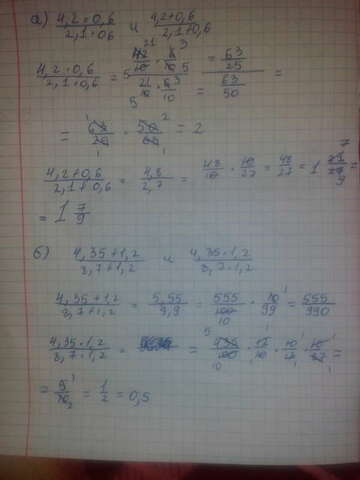 а) 4,2·0,6 / 2,1·0,6 и 4,2+0,6 / 2,1+0,6
4,2·0,6 / 2,1·0,6 = 42/10 · 6/10 / 21/10 · 6/10 = 63/25 / 63/50 =
= 63/25 · 50/63 = 2
4,2+0,6 / 2,1+0,6 = 4,8 / 2,7 = 48/10 · 10/27 = 48/27 = 1 21/27 =
= 1 7/9
б) 4,35+1,2 / 8,7+1,2 и 4,35·1,2 / 8,7·1,2
4,35+1,2 / 8,7+1,2 = 5,55 / 9,9 = 555/100 · 10/99 = 555/990
4,35·1,2 / 8,7·1,2 = 435/100 · 12/10 · 10/12 · 10/87 =
= 5/10 = 1/2 = 0,5